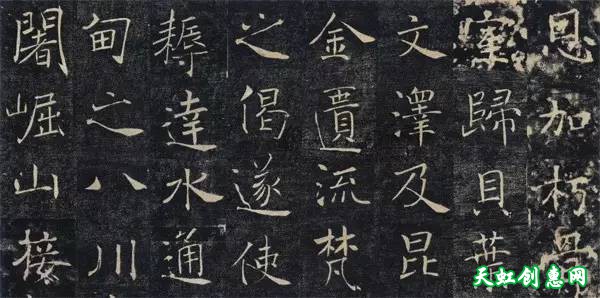 恩加朽骨
室歸貝葉
文澤及昆
金匱流梵
之偈遂使
耨達水通
甸之八川
闍崛山接
天虹创惠网